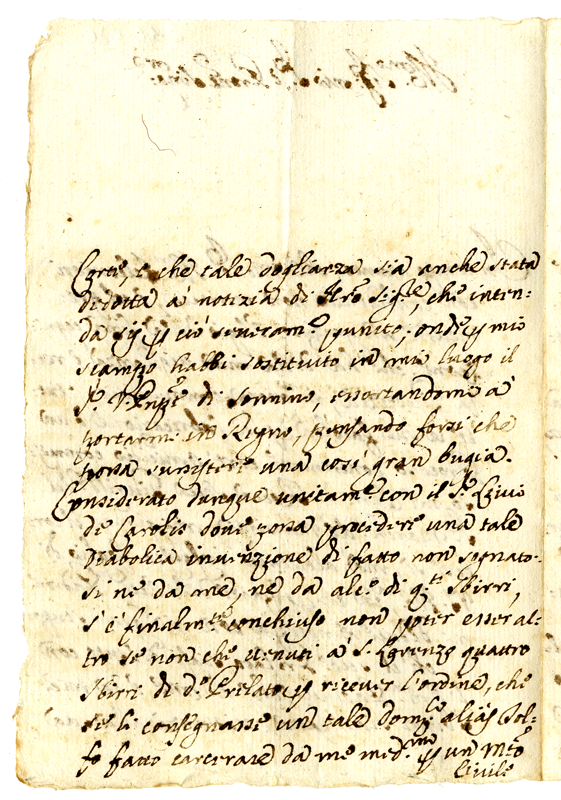 Corte, e che tale doglianza sia anche stata
dedotta à notizia di Ill.ro Sig.re, che inten=
da sij p ciò severam.e punito; onde p mio
scampo habbi sostituito in mio luogo il
S.r di Sonnino, essortandomi à
portarmi in Regno, pensando forsi che
possa sussistere una così gran bugia.
Considerato dunque unitam.e con il S.r Livio
de Carolis dove possa procedere una tale
Diabolica invenzione di fatto non sognato=
si ne da me, ne da alc.o di q.ti sbirri,
s'è finalm.te conchiuso non poter esser al=
tro se non che venuti à S. Lorenzo quattro
sbirri di d.o Prelato p ricever l'ordine, che
se li consegnasse un tale Dom.co alias Sol=
fo fatto carcerare da me med.mo p un
Civile